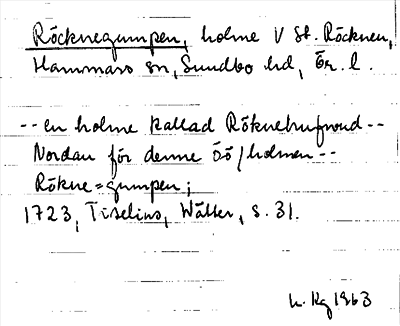 Röcknegumpen, holme V St. Röcknen,
Hammars sn, Sundbo hd, Ör. l.
-- en holme kallad Röknehufwud --
Nordan för denne öö/holmen --
Rökne=gumpen;
1723, Tiselius, Wätter, s. 31.
1963